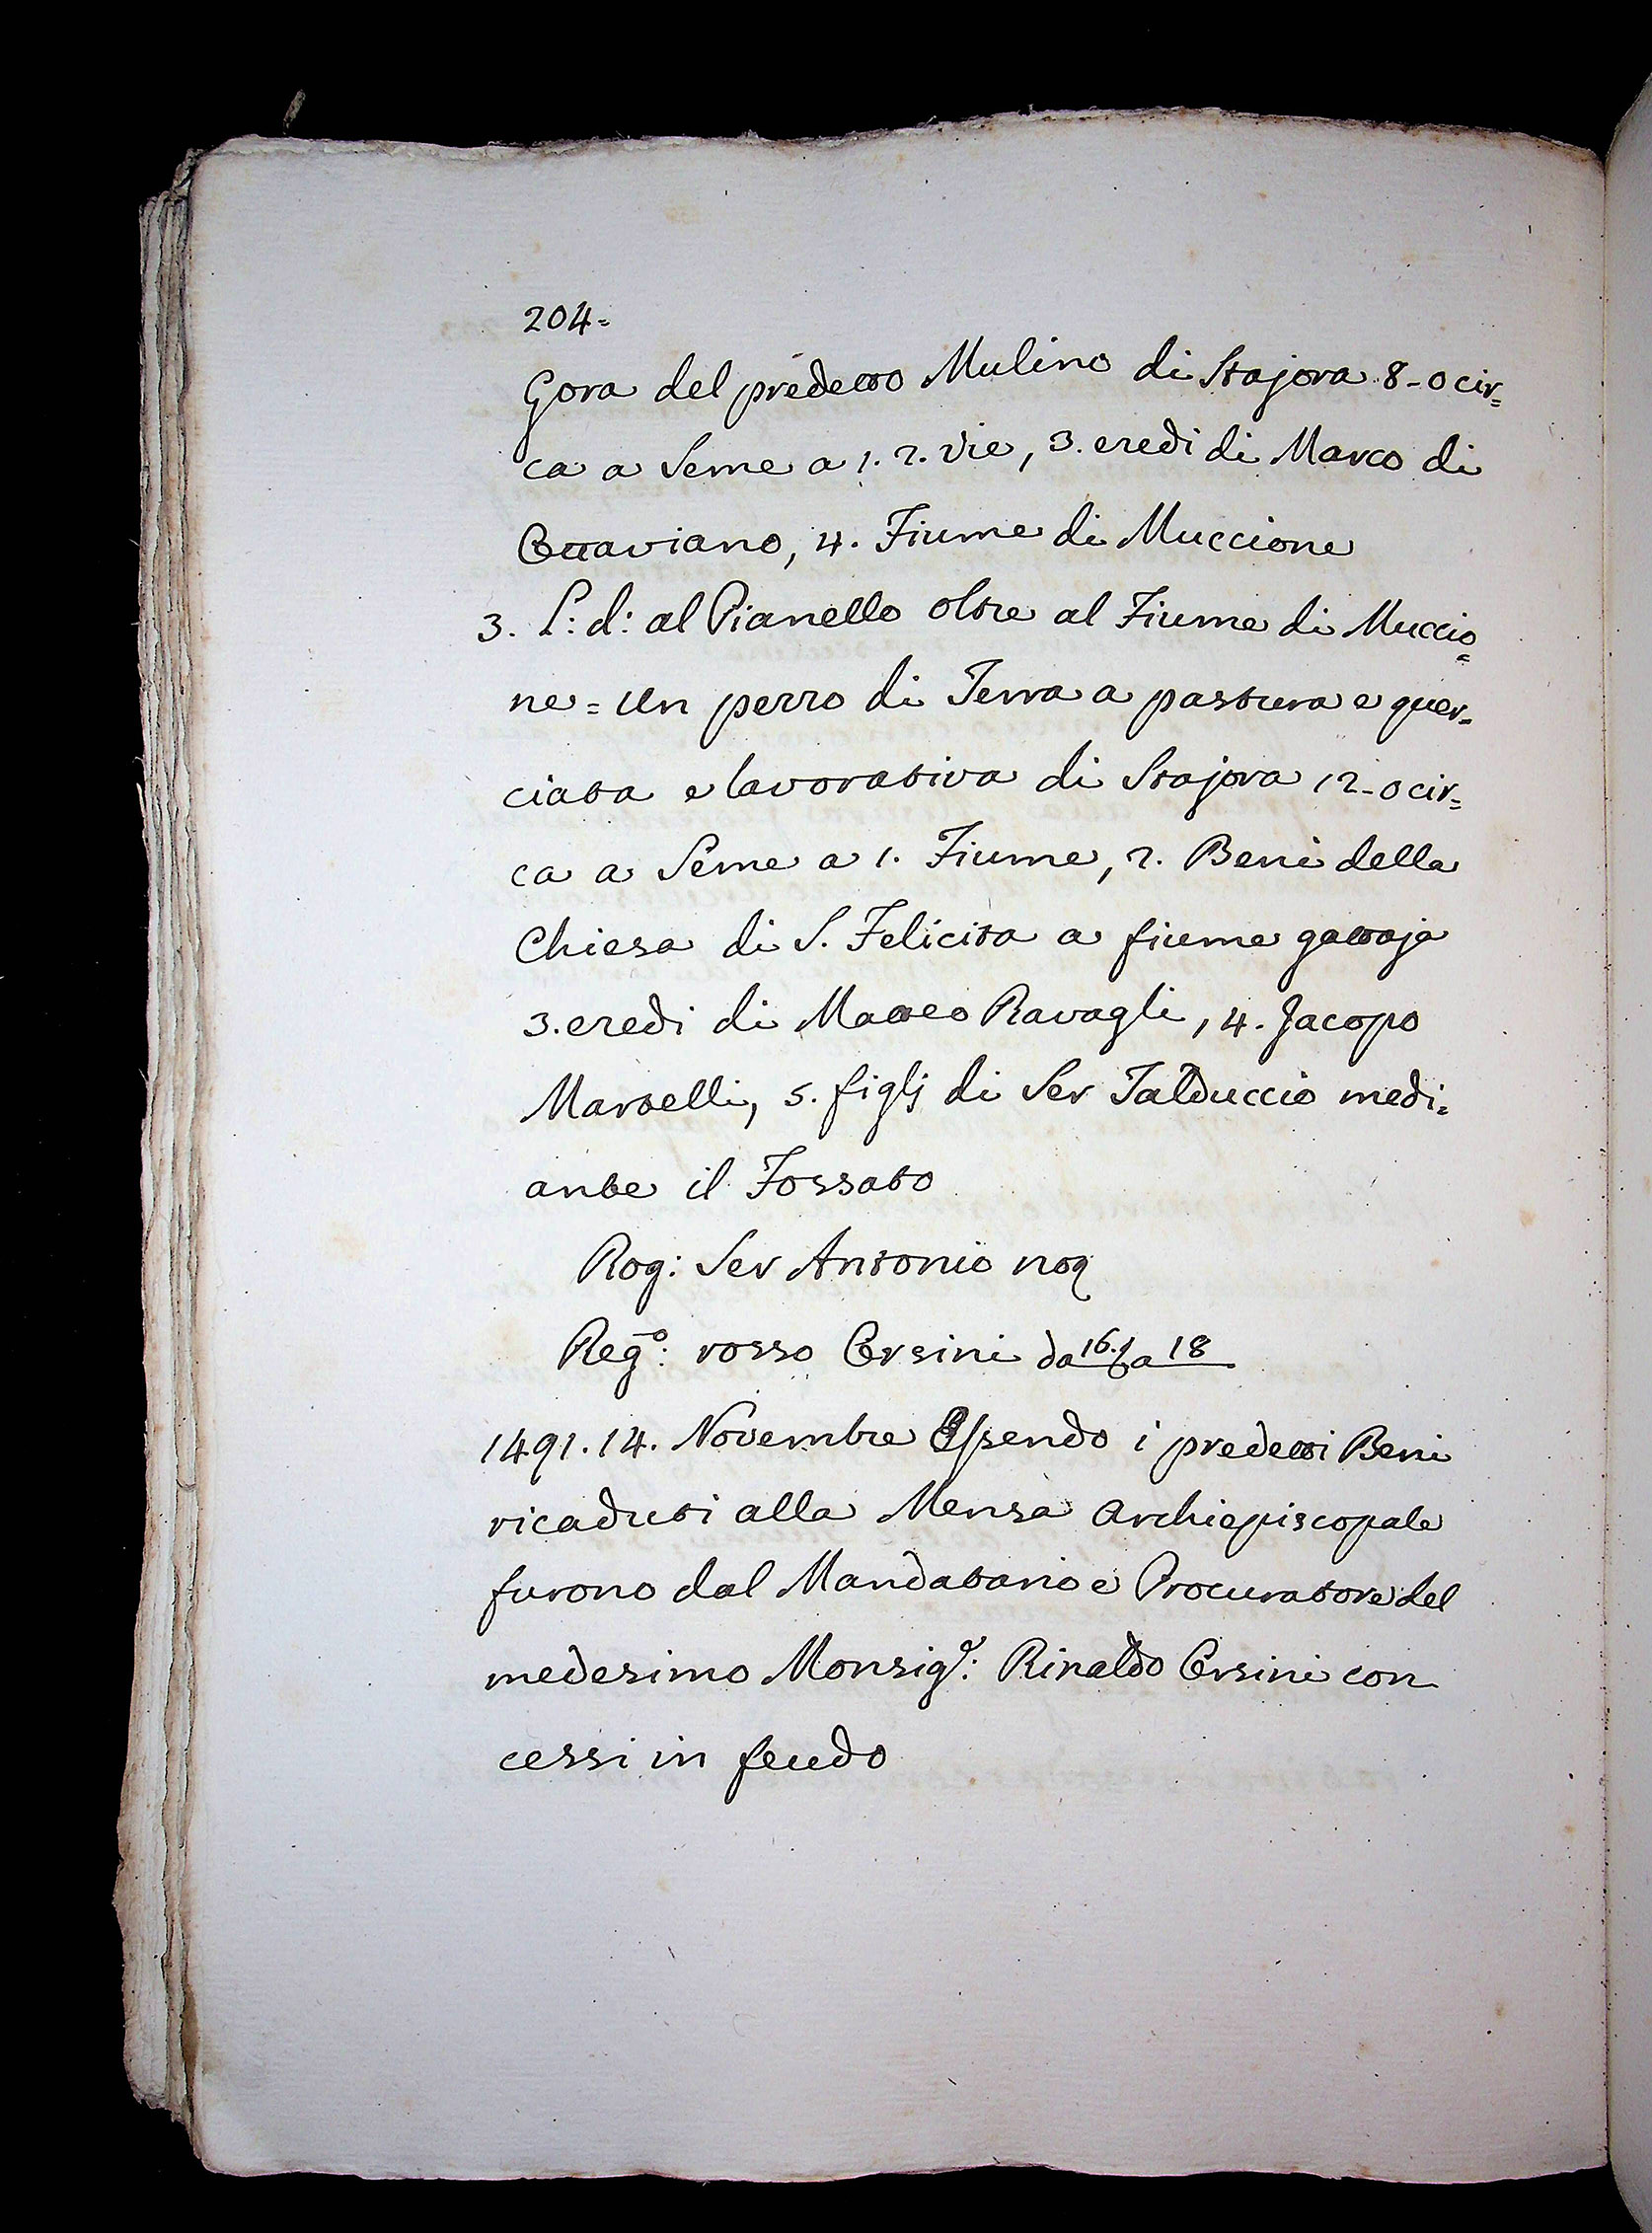 204=
Gora del predetto Mulino di Stajora 8-0 cir=
ca a Seme a 1. 2. vie, 3. eredi di Marco di
Ottaviano, 4. Fiume di Muccione
3. L: d: al Pianello oltre al Fiume di Muccio=
ne = Un pezzo di Terra a pastura e quer=
ciata e lavorativa di Stajora 12-0 cir=
ca a Seme a 1. Fiume, 2. Beni della
Chiesa di S. Felicita a fiume gattaja
3. eredi di Matteo Ravagli, 4. Jacopo
Martelli, 5. figlj di Ser Talduccio medi=
ante il Fossato
Rog: Ser Antonio
Reg.º: rosso Orsini da 16. t a 18
1491. 14. Novembre Essendo i predetti Beni
ricaduti alla Mensa Archiepiscopale
furono dal Mandatario e Procuratore del
medesimo Monsig.r: Rinaldo Orsini con
cessi in feudo